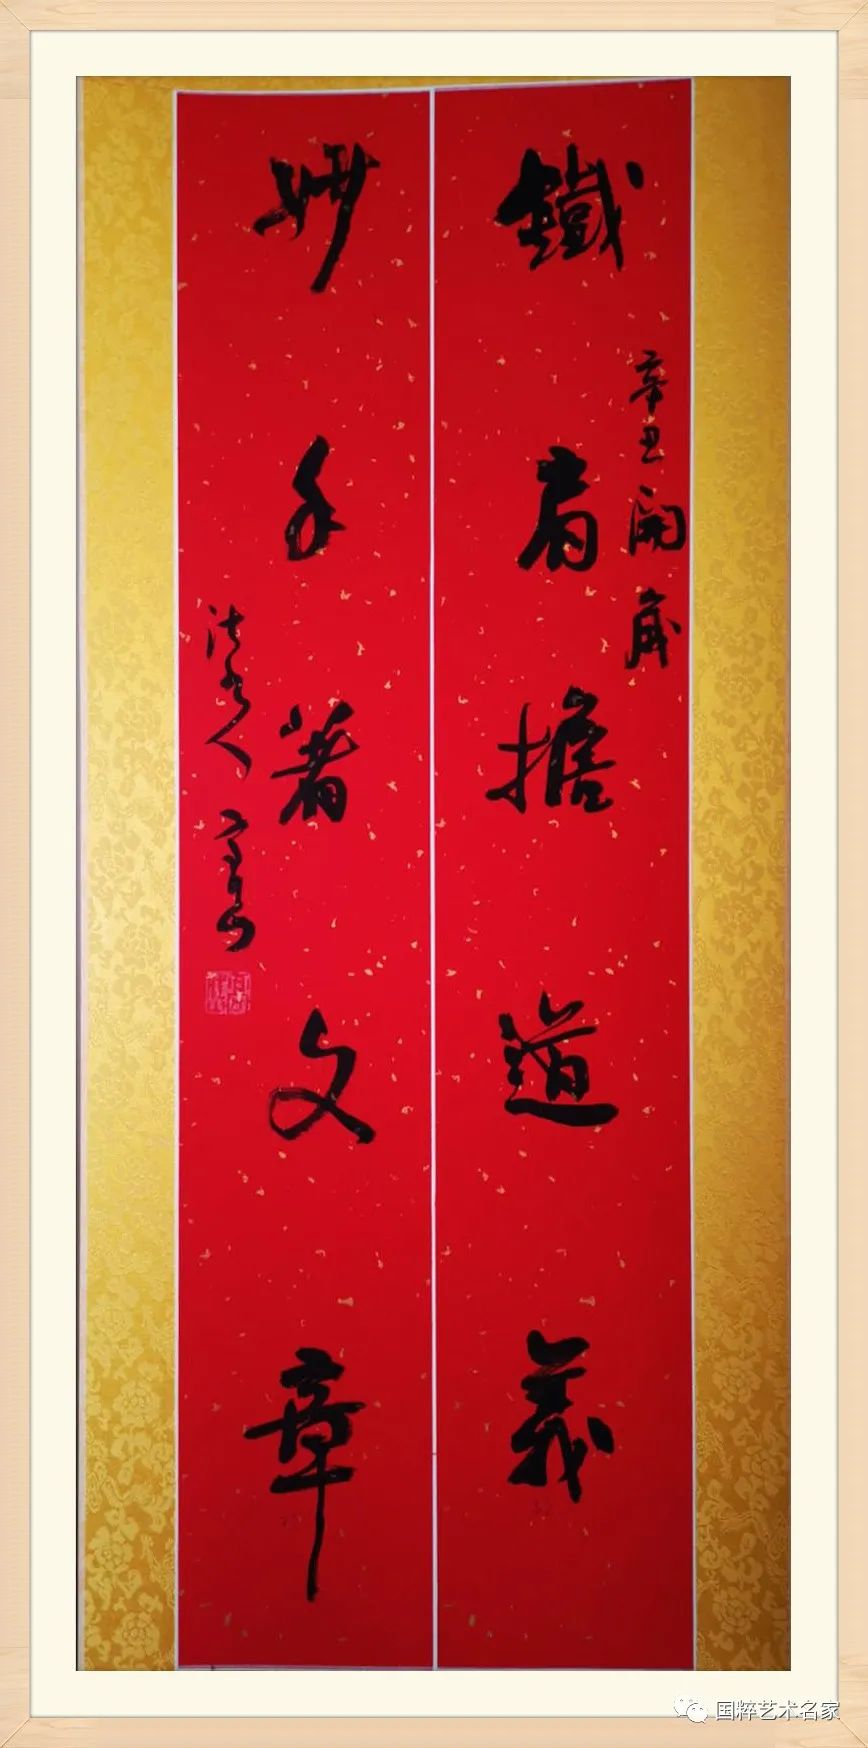 鐵肩擔道義
辛丑開歲
妙手著文章
国粹艺术名家